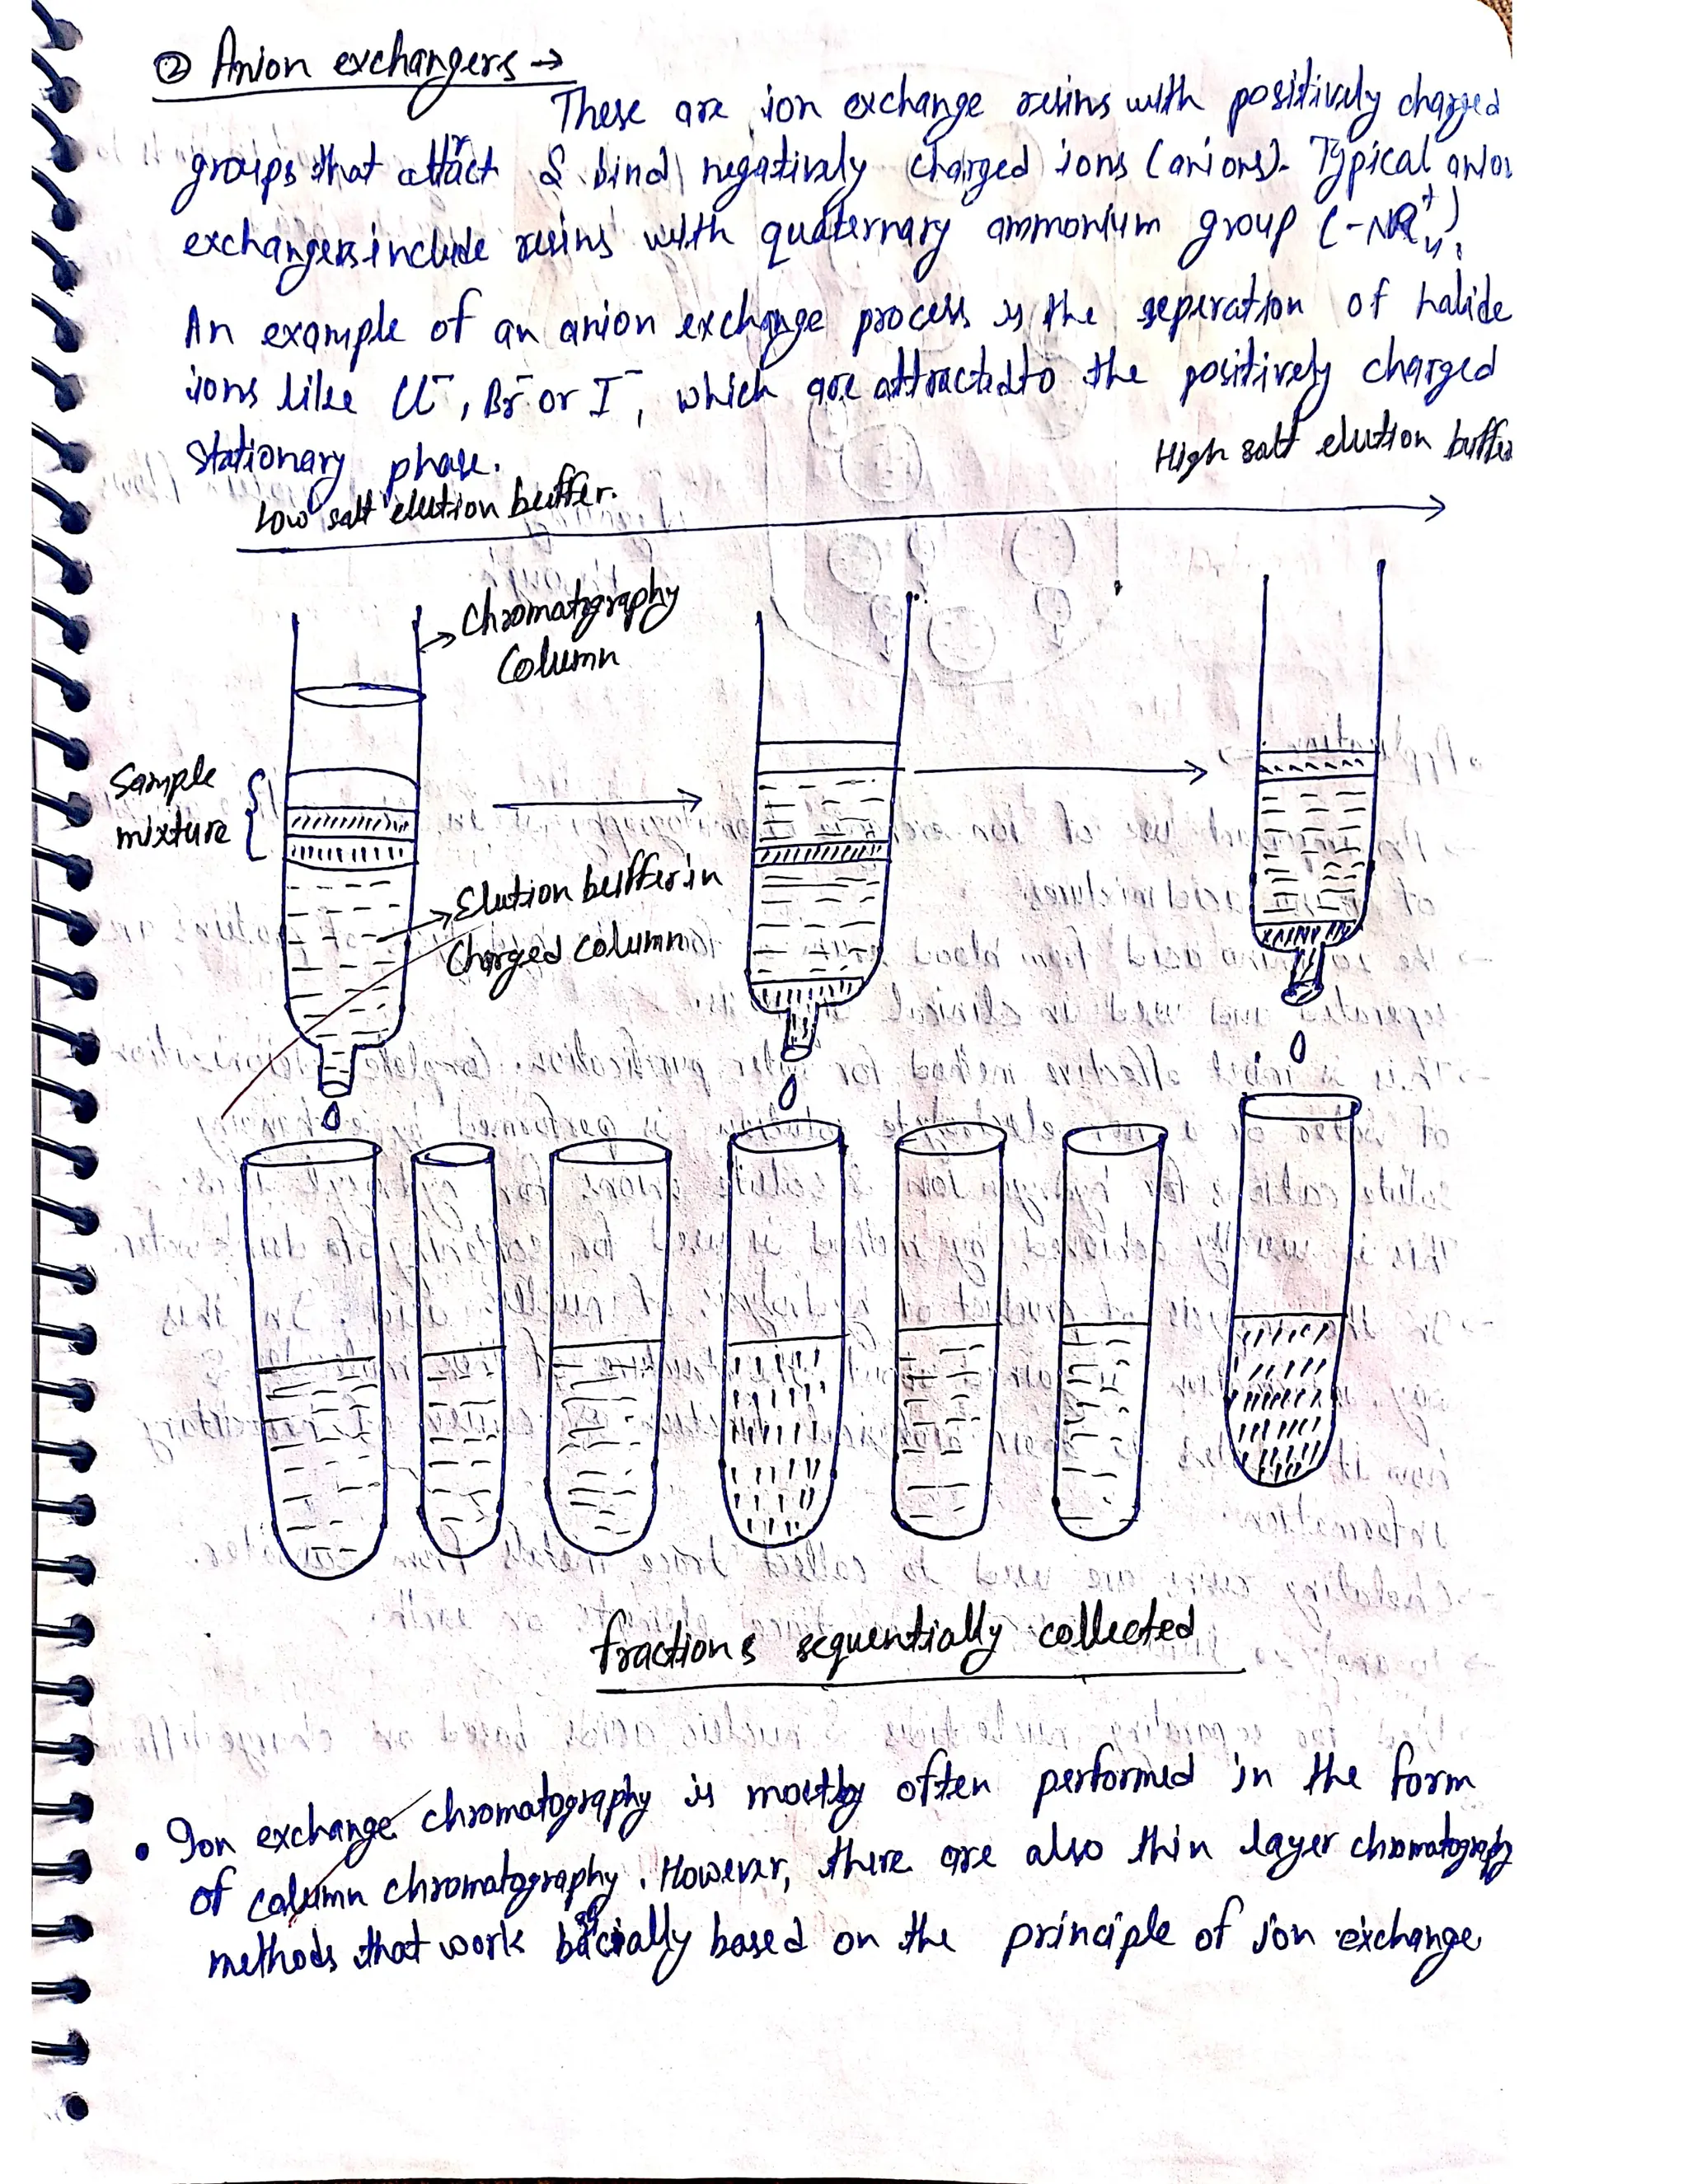 ② Anion exchangers →
These are ion exchange resins with positively charged
groups that attract & bind negatively charged ions (anions). Typical anion
exchangers include resins with quaternary ammonium group (-NR₄⁺).
An example of an anion exchange process is the seperation of halide
ions like Cl⁻, Br⁻ or I⁻, which are attracted to the positively charged
stationary phase.
High salt elution buffer
Low salt elution buffer.
Chromatography
Column
Sample
mixture
Elution buffer in
Charged column
fractions sequentially collected
• Ion exchange chromatography is mostly often performed in the form
of column chromatography. However, there are also thin layer chromatography
methods that work basically based on the principle of ion exchange